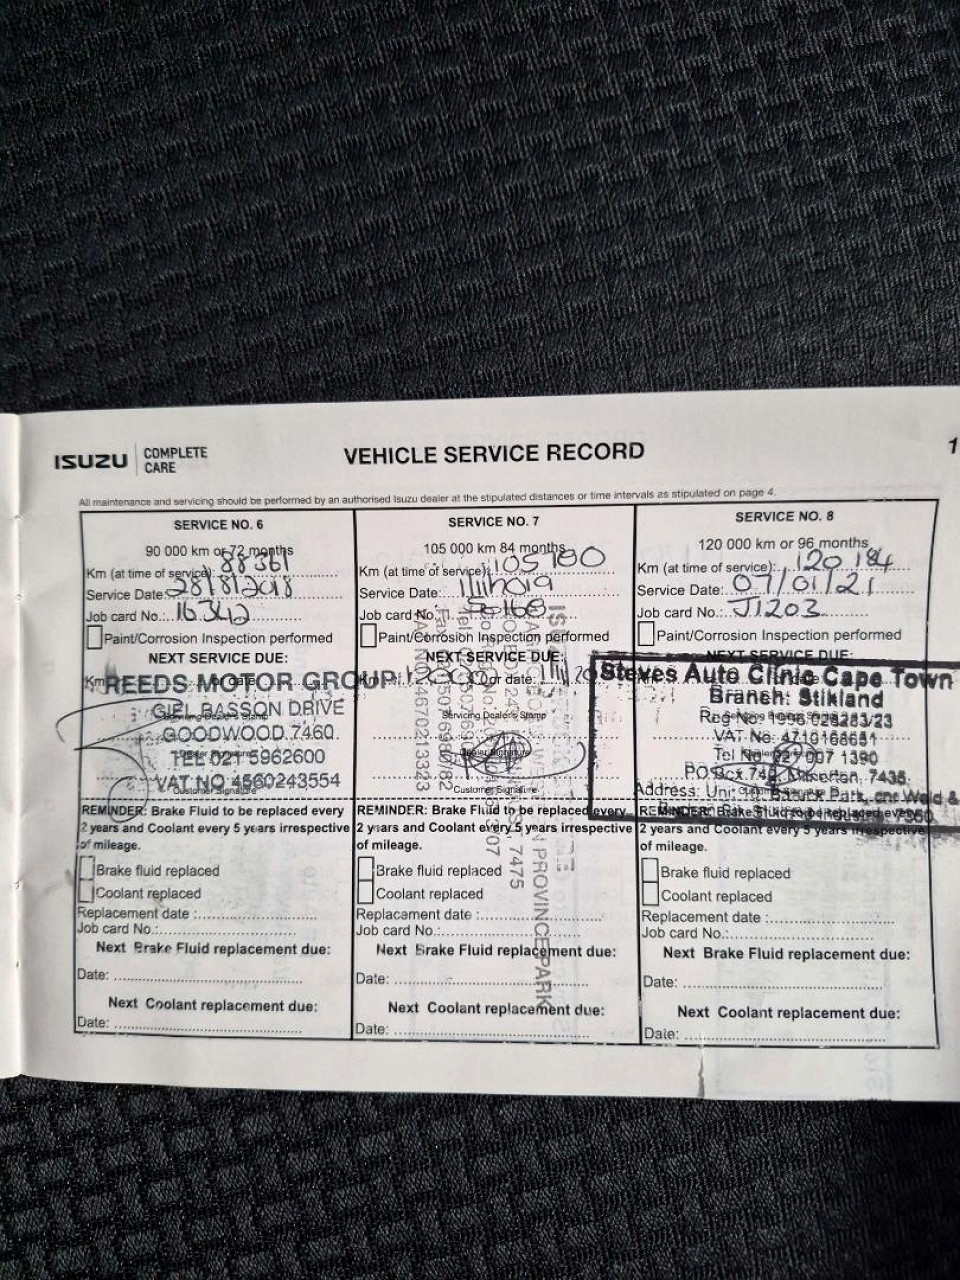 ISUZU COMPLETE CARE
VEHICLE SERVICE RECORD
1
All maintenance and servicing should be performed by an authorised Isuzu dealer at the stipulated distances or time intervals as stipulated on page 4.
SERVICE NO. 6
90 000 km or 72 months
Km (at time of service): 88361
Service Date: 28/8/2018
Job card No.: 16342
Paint/Corrosion Inspection performed
NEXT SERVICE DUE:
REEDS MOTOR GROUP
GIEL BASSON DRIVE
Servicing Dealer's Stamp
GOODWOOD 7460
Dealer Signature
TEL 021 5962600
VAT NO 4560243554
Customer Signature
REMINDER: Brake Fluid to be replaced every
2 years and Coolant every 5 years irrespective
of mileage.
Brake fluid replaced
Coolant replaced
Replacement date :
Job card No.:
Next Brake Fluid replacement due:
Date:
Next Coolant replacement due:
Date:
SERVICE NO. 7
105 000 km 84 months
Km (at time of service): 105100
Service Date:
Job card No.
Paint/Corrosion Inspection performed
NEXT SERVICE DUE:
or date:
Servicing Dealer's Stamp
Dealer Signature
Customer Signature
REMINDER: Brake Fluid to be replaced every
2 years and Coolant every 5 years irrespective
of mileage.
Brake fluid replaced
Coolant replaced
Replacement date :
Job card No.:
Next Brake Fluid replacement due:
Date:
Next Coolant replacement due:
Date:
7475
N PROVINCE PARK
SERVICE NO. 8
120 000 km or 96 months
Km (at time of service): 120 184
Service Date: 07/01/21
Job card No.: J1203
Paint/Corrosion Inspection performed
NEXT SERVICE DUE:
Steves Auto Clinic Cape Town
Branch: Stikland
Reg No: 1996/028283/23
VAT No: 4710168651
Tel No: 021 007 1390
PO Box 742, Milnerton, 7435
Address:
REMINDER: Brake Fluid to be replaced every
2 years and Coolant every 5 years irrespective
of mileage.
Brake fluid replaced
Coolant replaced
Replacement date :
Job card No.:
Next Brake Fluid replacement due:
Date:
Next Coolant replacement due:
Date: